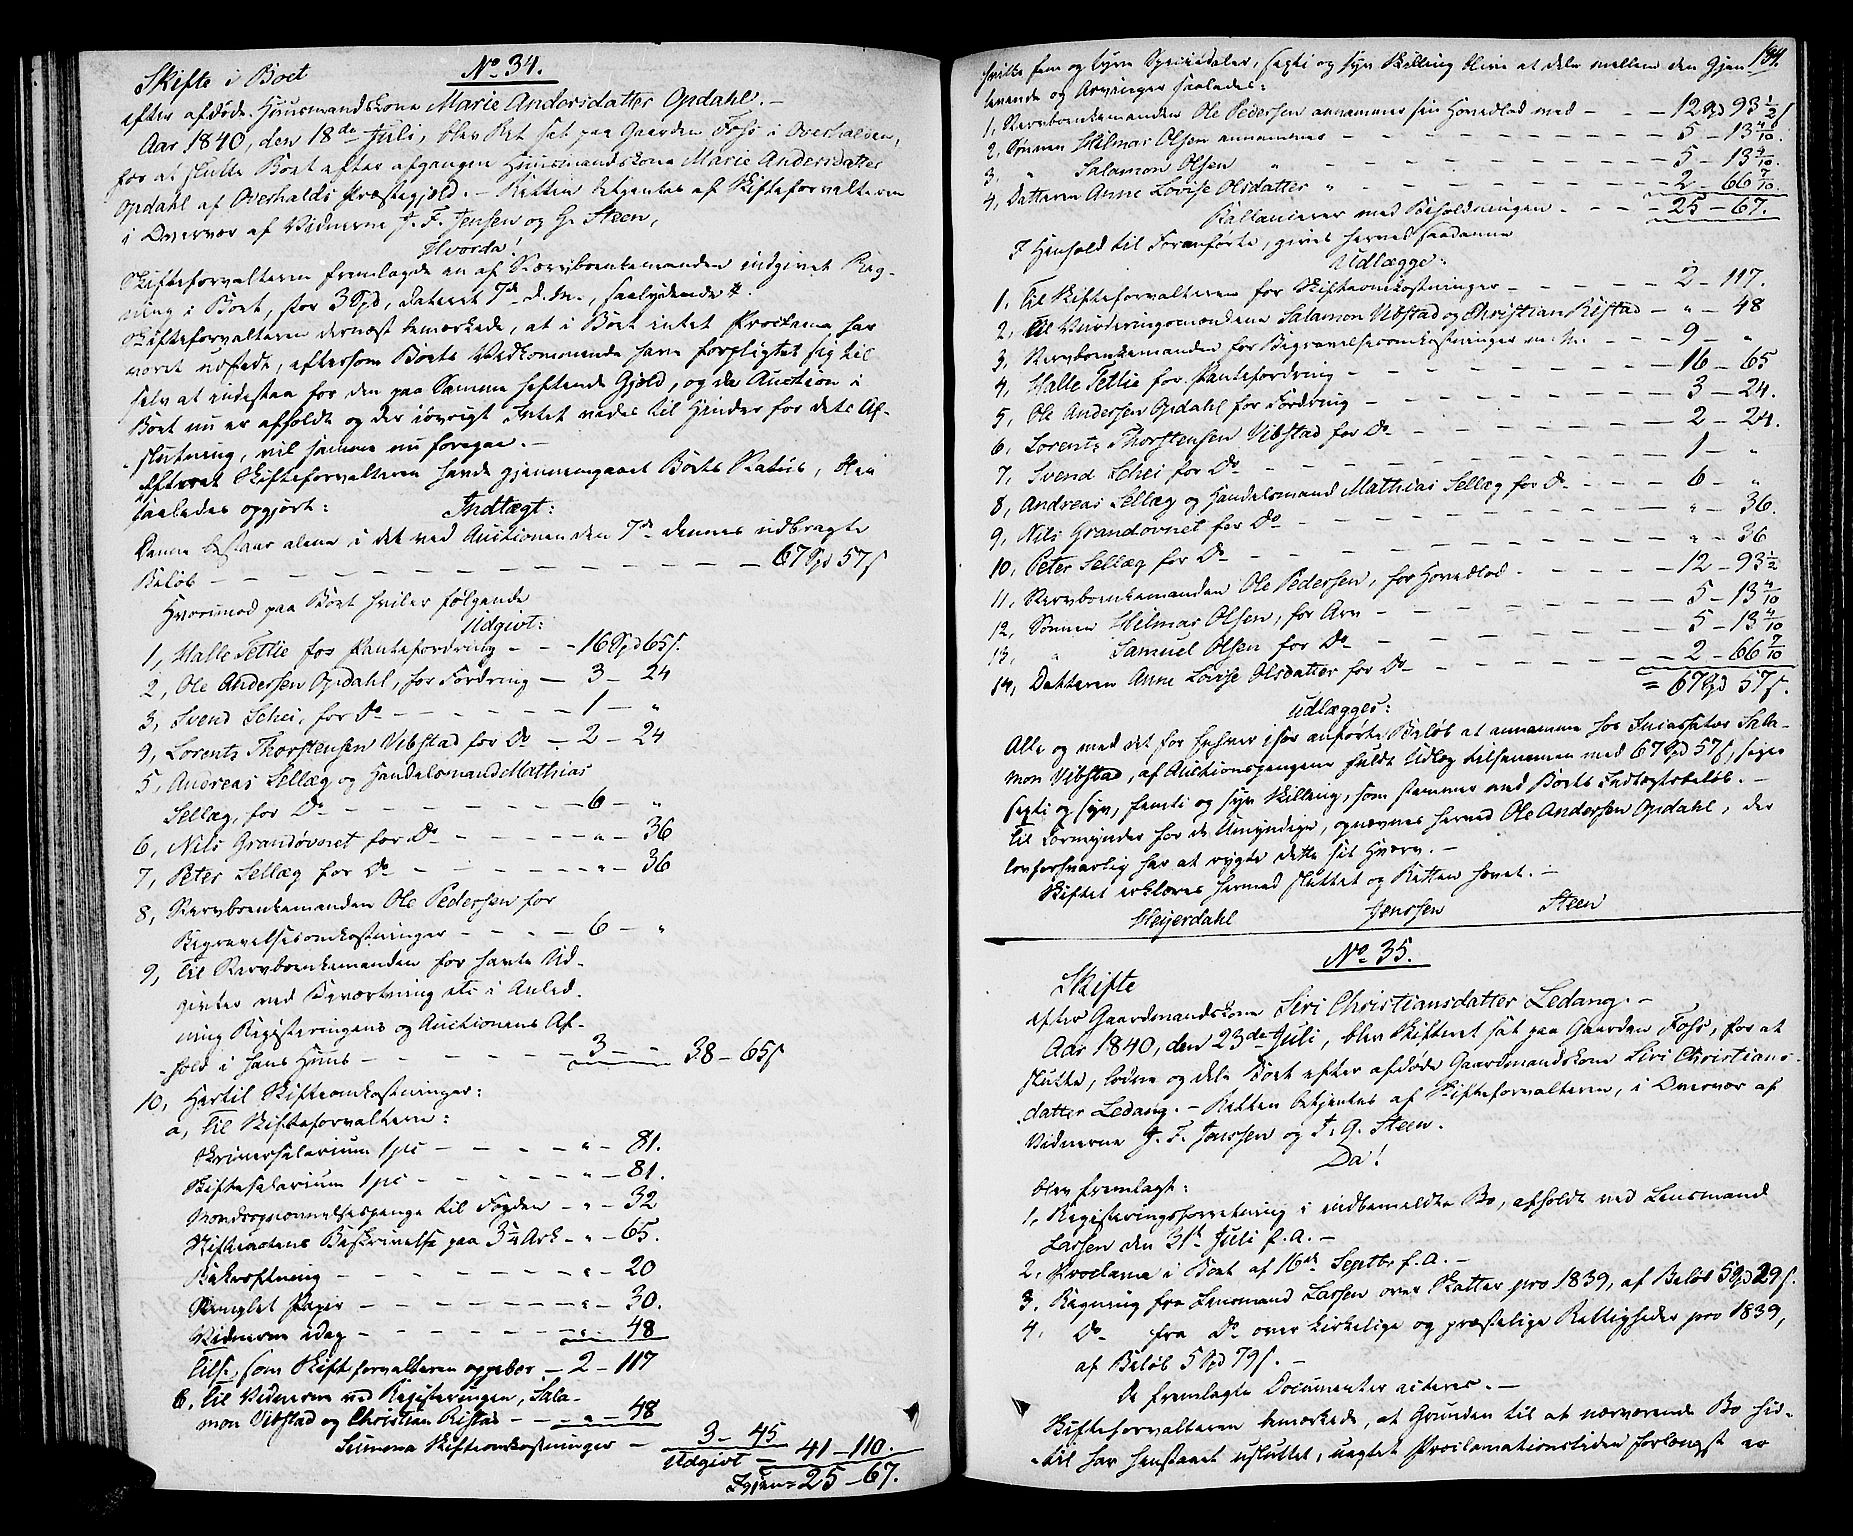 Skifte i Boet
No 34.
efter afdøde Huusmandskone Marie Andersdatter Opdahl. —
Aar 1840, den 18de Juli, blev Ret sat paa Gaarden Foss i Overhalden,
for at slutte Boet efter afgangen Huusmandskone Marie Andersdatter
Opdahl af Overhalds Præstegjeld. — Retten betjentes af Skifteforvalteren
i Overvær af Vidnerne J. F. Jenssen og G. Steen,
Hvorda!
Skifteforvalteren fremlagde en af Stervboenkemanden indgivet Reg-
ning i Boet, stor 3 Spd, dateret 7de d. M., saalydende #.
Skifteforvalteren dernæst bemærkede, at i Boet intet Proclama har
været udstedt, eftersom Boets Vedkommende have forpligtet sig til
selv at indestaa for den paa Samme heftende Gjeld, og da Auction i
Boet nu er afholdt og der iøvrigt Intet vides til Hinder for dets Af-
slutning, vil samme nu foregaa. —
Efterat Skifteforvalteren havde gjennemgaaet Boets Status, blev
saaledes opgjort:
Indtægt:
Denne bestaar alene i det ved Auctionen den 7de dennes udbragte
Beløb — — — — — — 67 Spd 57 s
Hvorimod paa Boet hviler følgende
Udgivt:
1, Halle Tettlie for Pantefordring - - - 16 Spd 65 s.
2, Ole Andersen Opdahl, for Fordring — 3 — 24
3, Svend Schei, for Do — — — — 1 — "
4, Lorents Thorstensen Vibstad for Do — 2 — 24
5, Andreas Sellæg og Handelsmand Mathias
Sellæg, for Do — — — — 6 — "
6, Nils Grandøvnet for Do — — — — " — 36
7, Peter Sellæg for Do — — — — " — 36
8, Stervboenkemanden Ole Pedersen for
Begravelsesomkostninger — — — — 6 — "
9, Til Stervboenkemanden for havte Ud-
givter ved Beværtning etc i Anled-
ning Registeringens og Auctionens Af-
hold i hans Huus — — — — 3 — - 38 — 65 s
10, Hertil Skifteomkostninger:
a, Til Skifteforvalteren:
Skriversalarium 1 pc — — — — " — 81.
Skiftesalarium 1 pc — — — — " — 81.
til Fogden — " — 32
Skifteactens Beskrivelse paa 3 1/4 Ark — " — 65.
Bekræftning — — — — " — 20
Stemplet Papir — — — — " — 30.
Vidnerne idag — — — — " — 48
Tils. som Skifteforvalteren oppebær — 2 — 117
b, Til Vidnerne ved Registeringen, Sala-
mon Vibstad og Christian Ristad — — " — 48
Summa Skifteomkostninger — 3 — 45
Udgivt — 41 — 110.
Igjen = 25 — 67.
194.
hvilke fem og tyve Speciedaler, sexti og syv Skilling blive at dele mellem den Gjen-
levende og Arvinger saaledes:
1, Stervboenkemanden Ole Pedersen annammer sin Hovedlod med - - - 12 Spd 93 1/2 s
2, Sønnen Hilmar Olsen annammer — — — — 5 — 13 4/10.
3, " Salamon Olsen " — — — — 5 — 13 4/10.
4, Datteren Anne Lovise Olsdatter " — — — — 2 — 66 7/10.
Ballancerer med Beholdningen - - - 25 — 67.
I Henhold til Foranførte, gives herved saadanne
Udlægge:
1, Til Skifteforvalteren for Skifteomkostninger — — — — 2 — 117.
2, Til Vurderingsmændene Salamon Vibstad og Christian Ristad — " — 48
3, Stervboenkemanden for Begravelsesomkostninger m. M. - - - 9 — "
4, Halle Tettlie for Pantefordring — — — — 16 — 65
5, Ole Andersen Opdahl for Fordring — — — — 3 — 24.
6, Lorents Thorstensen Vibstad for Do — — — — 2 — 24.
7, Svend Schei for Do — — — — 1 — "
8, Andreas Sellæg og Handelsmand Mathias Sellæg for Do - - - 6 — "
9, Nils Grandøvnet for Do — — — — " — 36.
10, Peter Sellæg for Do — — — — " — 36
11, Stervboenkemanden Ole Pedersen, for Hovedlod - - - 12 — 93 1/2
12, Sønnen Hilmar Olsen, for Arv — — — — 5 — 13 4/10
13, " Samuel Olsen for Do — — — — 5 — 13 4/10
14, Datteren Anne Lovise Olsdatter for Do — — — — 2 — 66 7/10
= 67 Spd 57 s.
Udlægges:
Alle og med det for Enhver især anførte Beløb at annamme hos Incassator Sala-
mon Vibstad, af Auctionspengene fuldt Udlæg tilsammen med 67 Spd 57 s, siger
sexti og syv, femti og syv Skilling, som stemmer med Boets Indtægtsbeløb. —
Til Formynder for de Umyndige, opnævnes herved Ole Andersen Opdahl, der
lovforsvarlig har at røgte dette sit Hverv. —
Skiftet erklæres hermed sluttet og Retten hævet. —
Heyerdahl Jenssen Steen
No 35.
Skifte
efter Gaardmandskone Siri Christiansdatter Ledang. —
Aar 1840, den 23de Juli, blev Skifteret sat paa Gaarden Foss, for at
slutte, lodne og dele Boet efter afdøde Gaardmandskone Siri Christians-
datter Ledang. — Retten betjentes af Skifteforvalteren, i Overvær af
Vidnerne J. F. Jenssen og J. G. Steen.
Da!
blev fremlagt:
1, Registeringsforretning i indbemeldte Bo, afholdt ved Lensmand
Lassen den 31te Juli f. A. —
2, Proclama i Boet af 16de Septbr f. A. —
3, Regning fra Lensmand Lassen over Skatter pro 1839, af Beløb 5 Spd 29 s.
4, Do fra Do over kirkelige og præstelige Rettigheder pro 1839,
af Beløb 5 Spd 79 s. —
De fremlagte Documenter acteres. —
Skifteforvalteren bemærkede, at Grunden til at nærværende Bo hid-
til har henstaaet usluttet, uagtet Proclamationstiden forlængst er